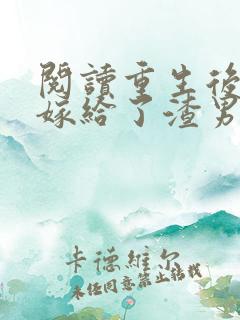 閱讀重生後
嫁給了渣男
卡德維尔
未经同意禁止转载